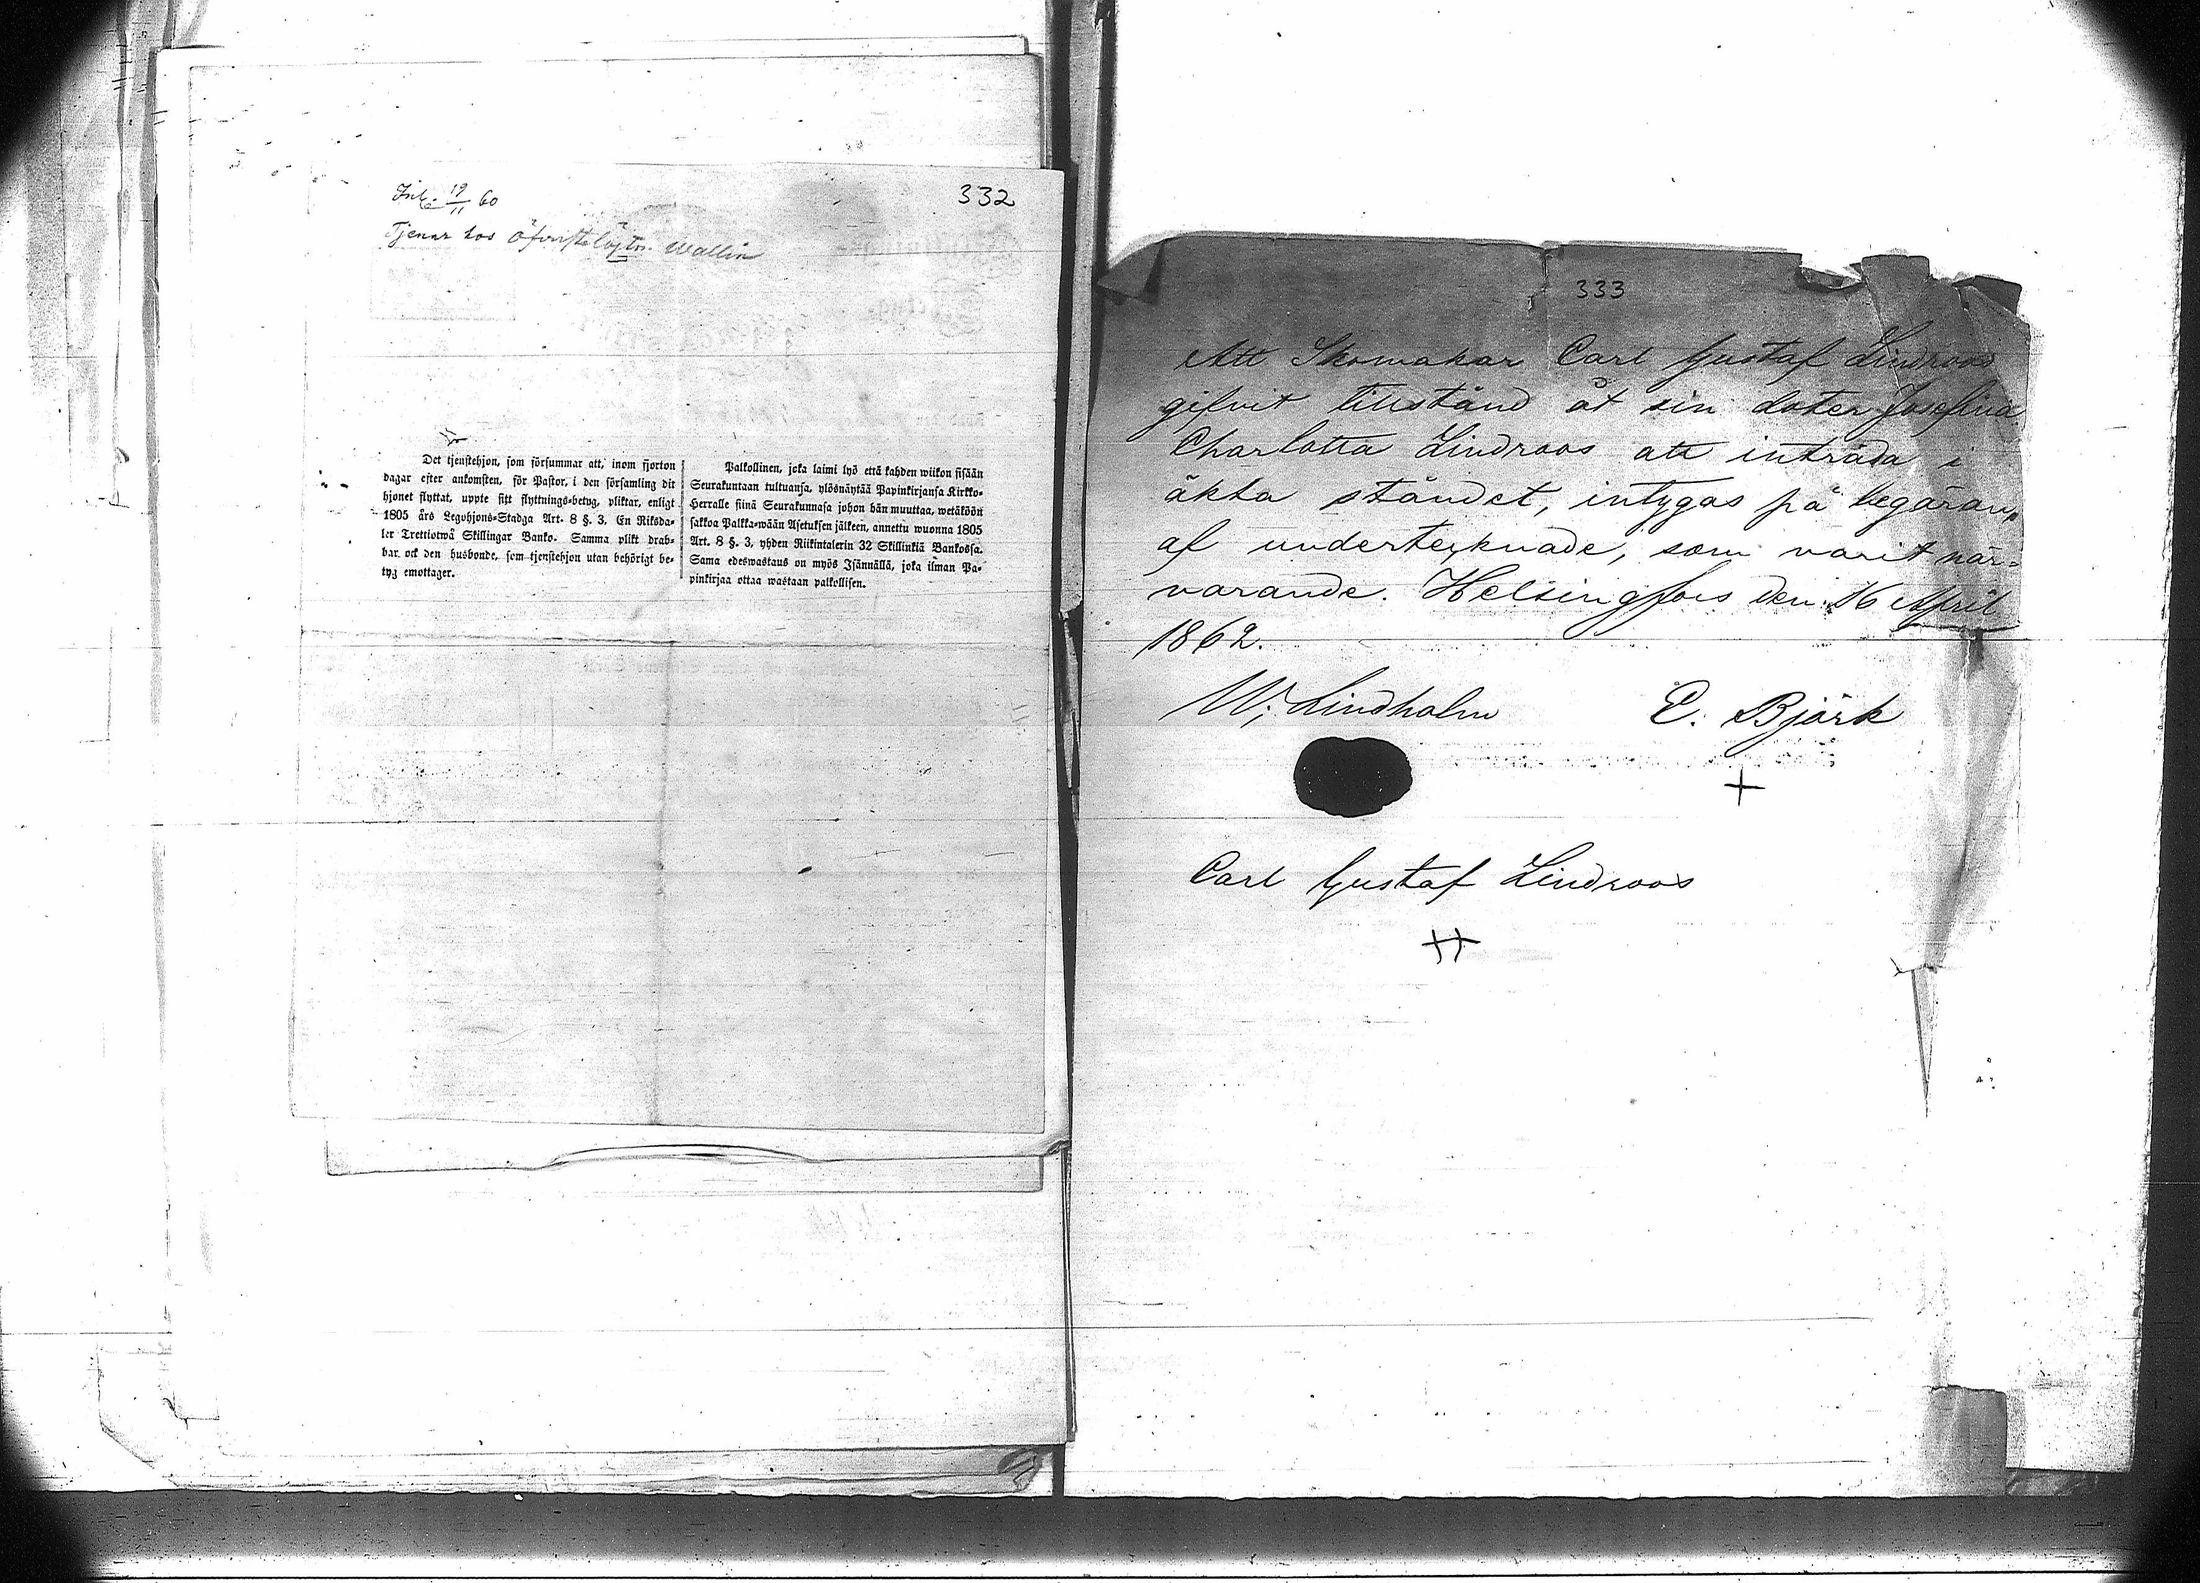 332
Ink. 19/11 60
Tjenar hos Öfverstelöjtn. Wallin
Det tjenstehjon, som försummar att, inom fjorton
dagar efter ankomsten, för Pastor, i den församling dit
hjonet flyttat, uppte sitt flyttnings-betyg, pliktar, enligt
1805 års Legohjons-Stadga Art. 8 §. 3, En Riksda-
ler Trettiotwå Skillingar Banko. Samma plikt drab-
bar ock den husbonde, som tjenstehjon utan behörigt be-
tyg emottager.
Palkollinen, joka laimi lyö että kahden wiikon sisään
Seurakuntaan tultuansa, ylösnäytää Papinkirjansa Kirkko-
Herralle siinä Seurakunnasa johon hän muuttaa, wetäköön
sakkoa Palkka-wään Asetuksen jälkeen, annettu wuonna 1805
Art. 8 §. 3, yhden Riikintalerin 32 Skillinkiä Bankossa.
Sama edeswastaus on myös Isännällä, joka ilman Pa-
pinkirjaa ottaa wastaan palkollisen.
333
Att Skomakar Carl Gustaf Lindroos
gifvit tillstånd åt sin doter Josefina
Charlotta Lindroos att inträda i
äkta ståndet, intygas på begäran,
af undertecknade, som varit när=
varande. Helsingfors den 16 April
1862.
W. Lindholm E. Björk
+
Carl Gustaf Lindroos
++